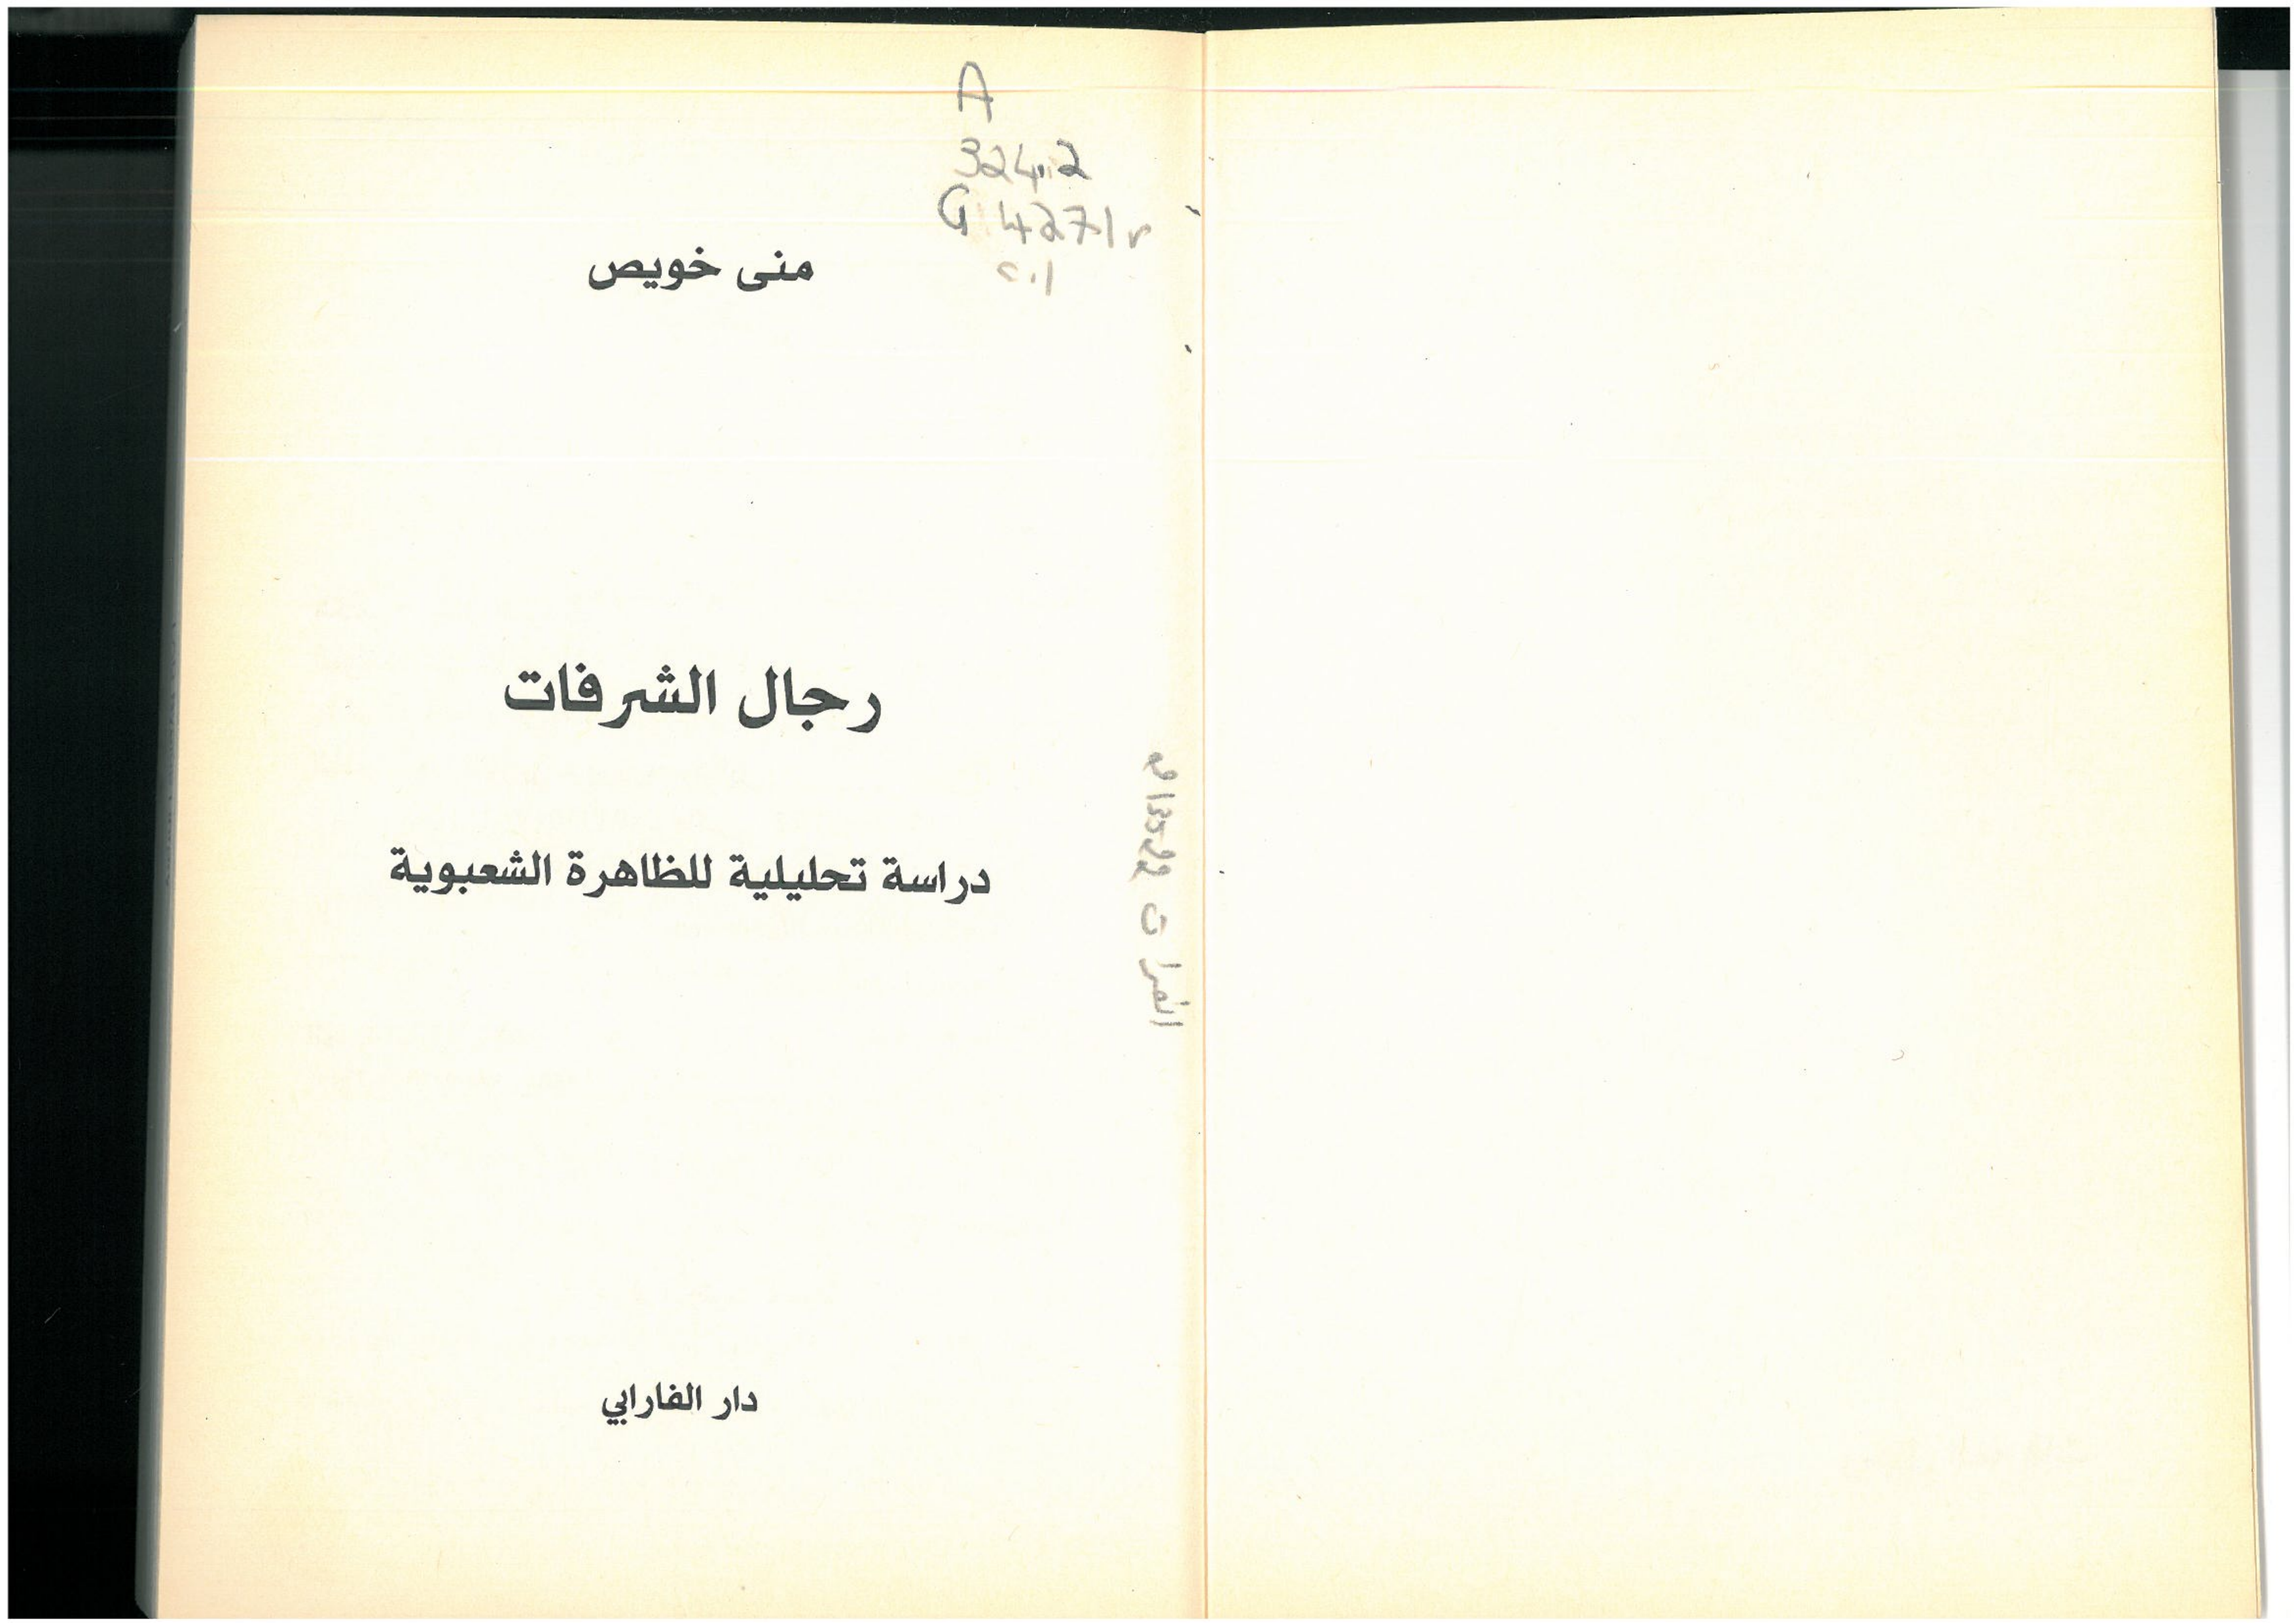 A
324.2
G 4271r
c.1
منى خويص
رجال الشرفات
دراسة تحليلية للظاهرة الشعبوية
دار الفارابي
الفرات